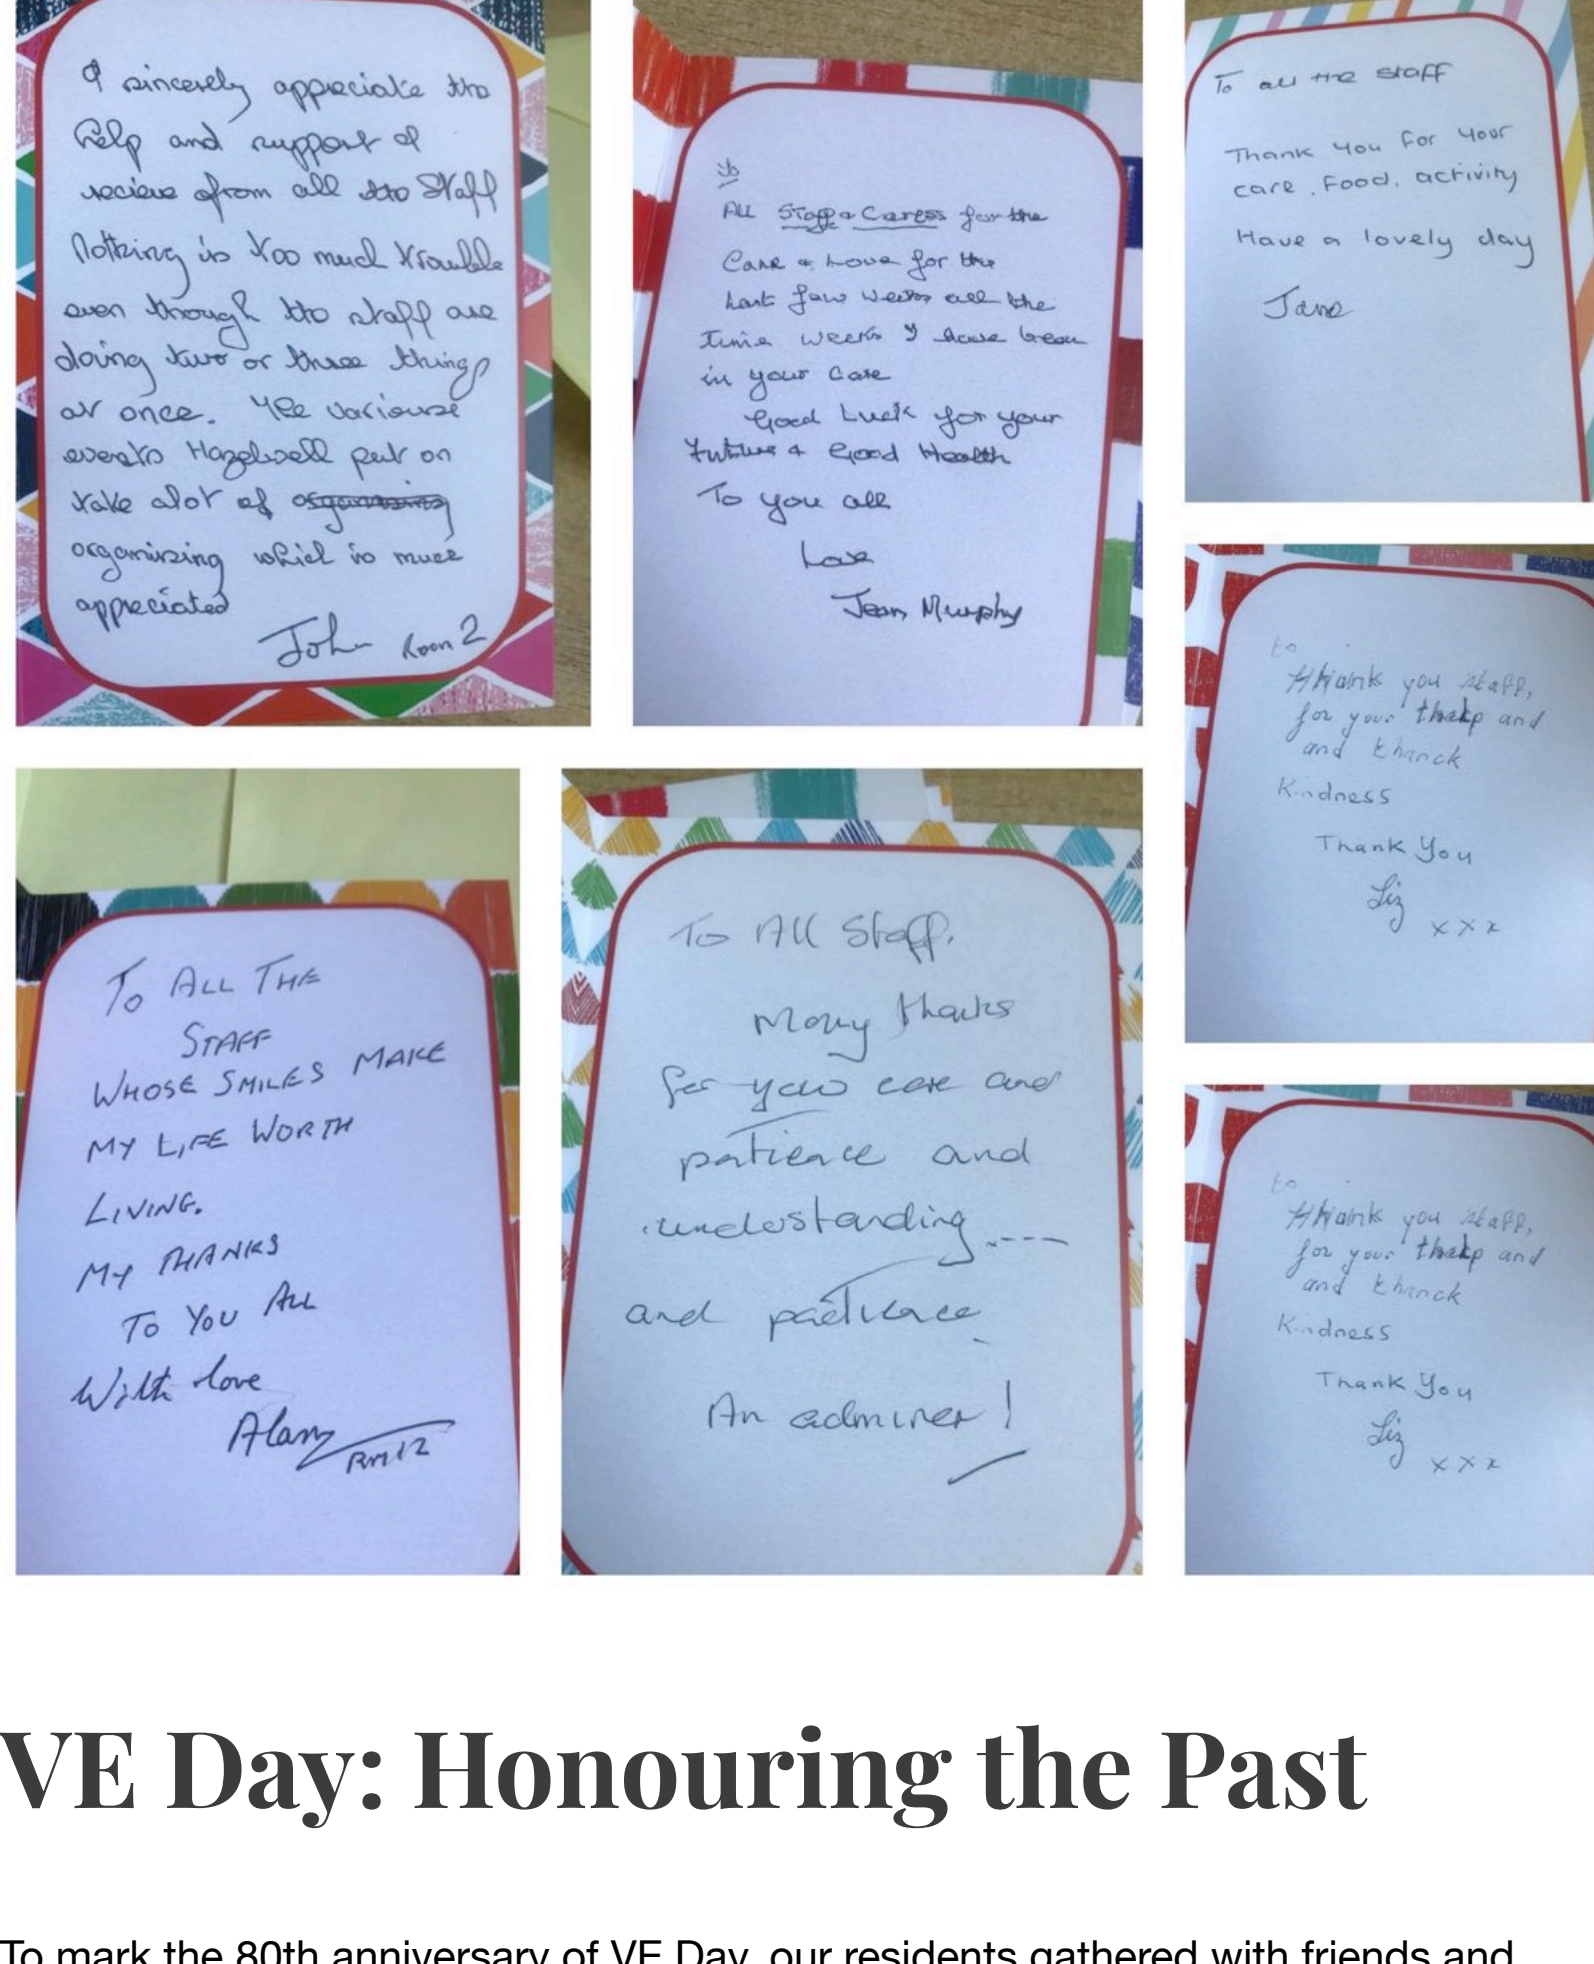 I sincerely appreciate the
help and support I
recieve from all the Staff
Nothing is too much trouble
even though the staff are
doing two or three things
at once. The variouse
events Hazelwell put on
take alot of organising
organising which is much
appreciated
John Room 2
To
ALL Staff & Carers for the
Care & Love for the
Last few weeks all the
Time weeks I have been
in your Care
Good Luck for your
Future & Good Health
To you all
Love
Jean Murphy
To all the staff
Thank you for your
care, food, activity
Have a lovely day
Jane
to
thank you staff,
for your and
and
Kindness
Thank You
Liz xxx
TO ALL THE
STAFF
WHOSE SMILES MAKE
MY LIFE WORTH
LIVING.
MY THANKS
TO YOU ALL
With love
Alan Rm12
To All Staff.
Many thanks
for your care and
patience and
understanding....
and patience
An admirer!
to
thank you staff,
for your and
and
Kindness
Thank You
Liz xxx
VE Day: Honouring the Past
To mark the 80th anniversary of VE Day, our residents gathered with friends and